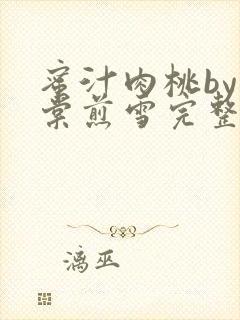 蜜汁肉桃by
棠煎雪完整
漓巫